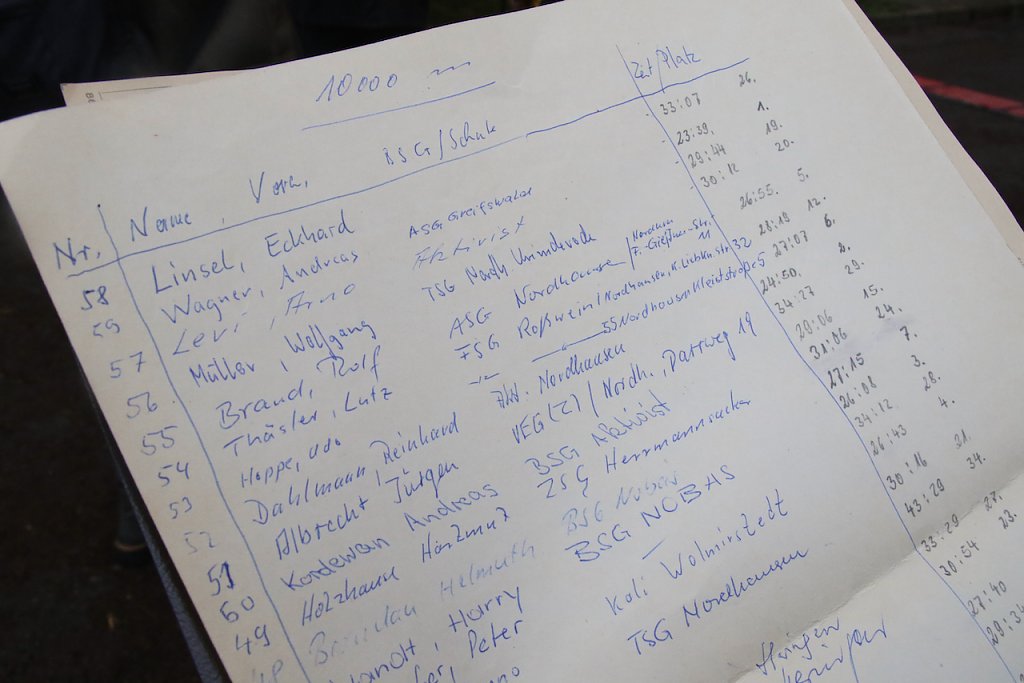 10000 m
Nr. Name, Vorn. BSG/Schule Zeit/Platz
58 Linsel, Eckhard ASG Greifswald 33:07 26.
59 Wagner, Andreas Aktivist 23:39. 1.
57 Levi, Arno TSG Nordh. 29:44 19.
56 Müller, Wolfgang ASG Nordhausen / Nordhsn F.-Gießner-Str. 11 30:12 20.
55 Brand, Rolf FSG Roßwein / Nordhausen, K. Liebkn. str. 32 26:55. 5.
54 Thäsler, Lutz -"- 55 Nordhausen Kleiststraße 5 28:19 12.
53 Hoppe, Udo Nordhausen 27:07 6.
52 Dahlmann, Reinhard VEG (Z) / Nordh., Darrweg 19 24:50. 2.
51 Albrecht Jürgen BSG Aktivist 34:27 29.
60 Kordewan Andreas ZSG Herrmannsacker 28:06 15.
49 Holzhause Hartmut BSG Nobas 31:06 24.
Helmuth BSG NOBAS 27:15 7.
Harry — 26:08 3.
Peter Koli Wolmirstedt 34:12 28.
TSG Nordhausen 26:43 4.
30:16 21.
43:29 34.
33:29 27.
30:54 23.
27:40